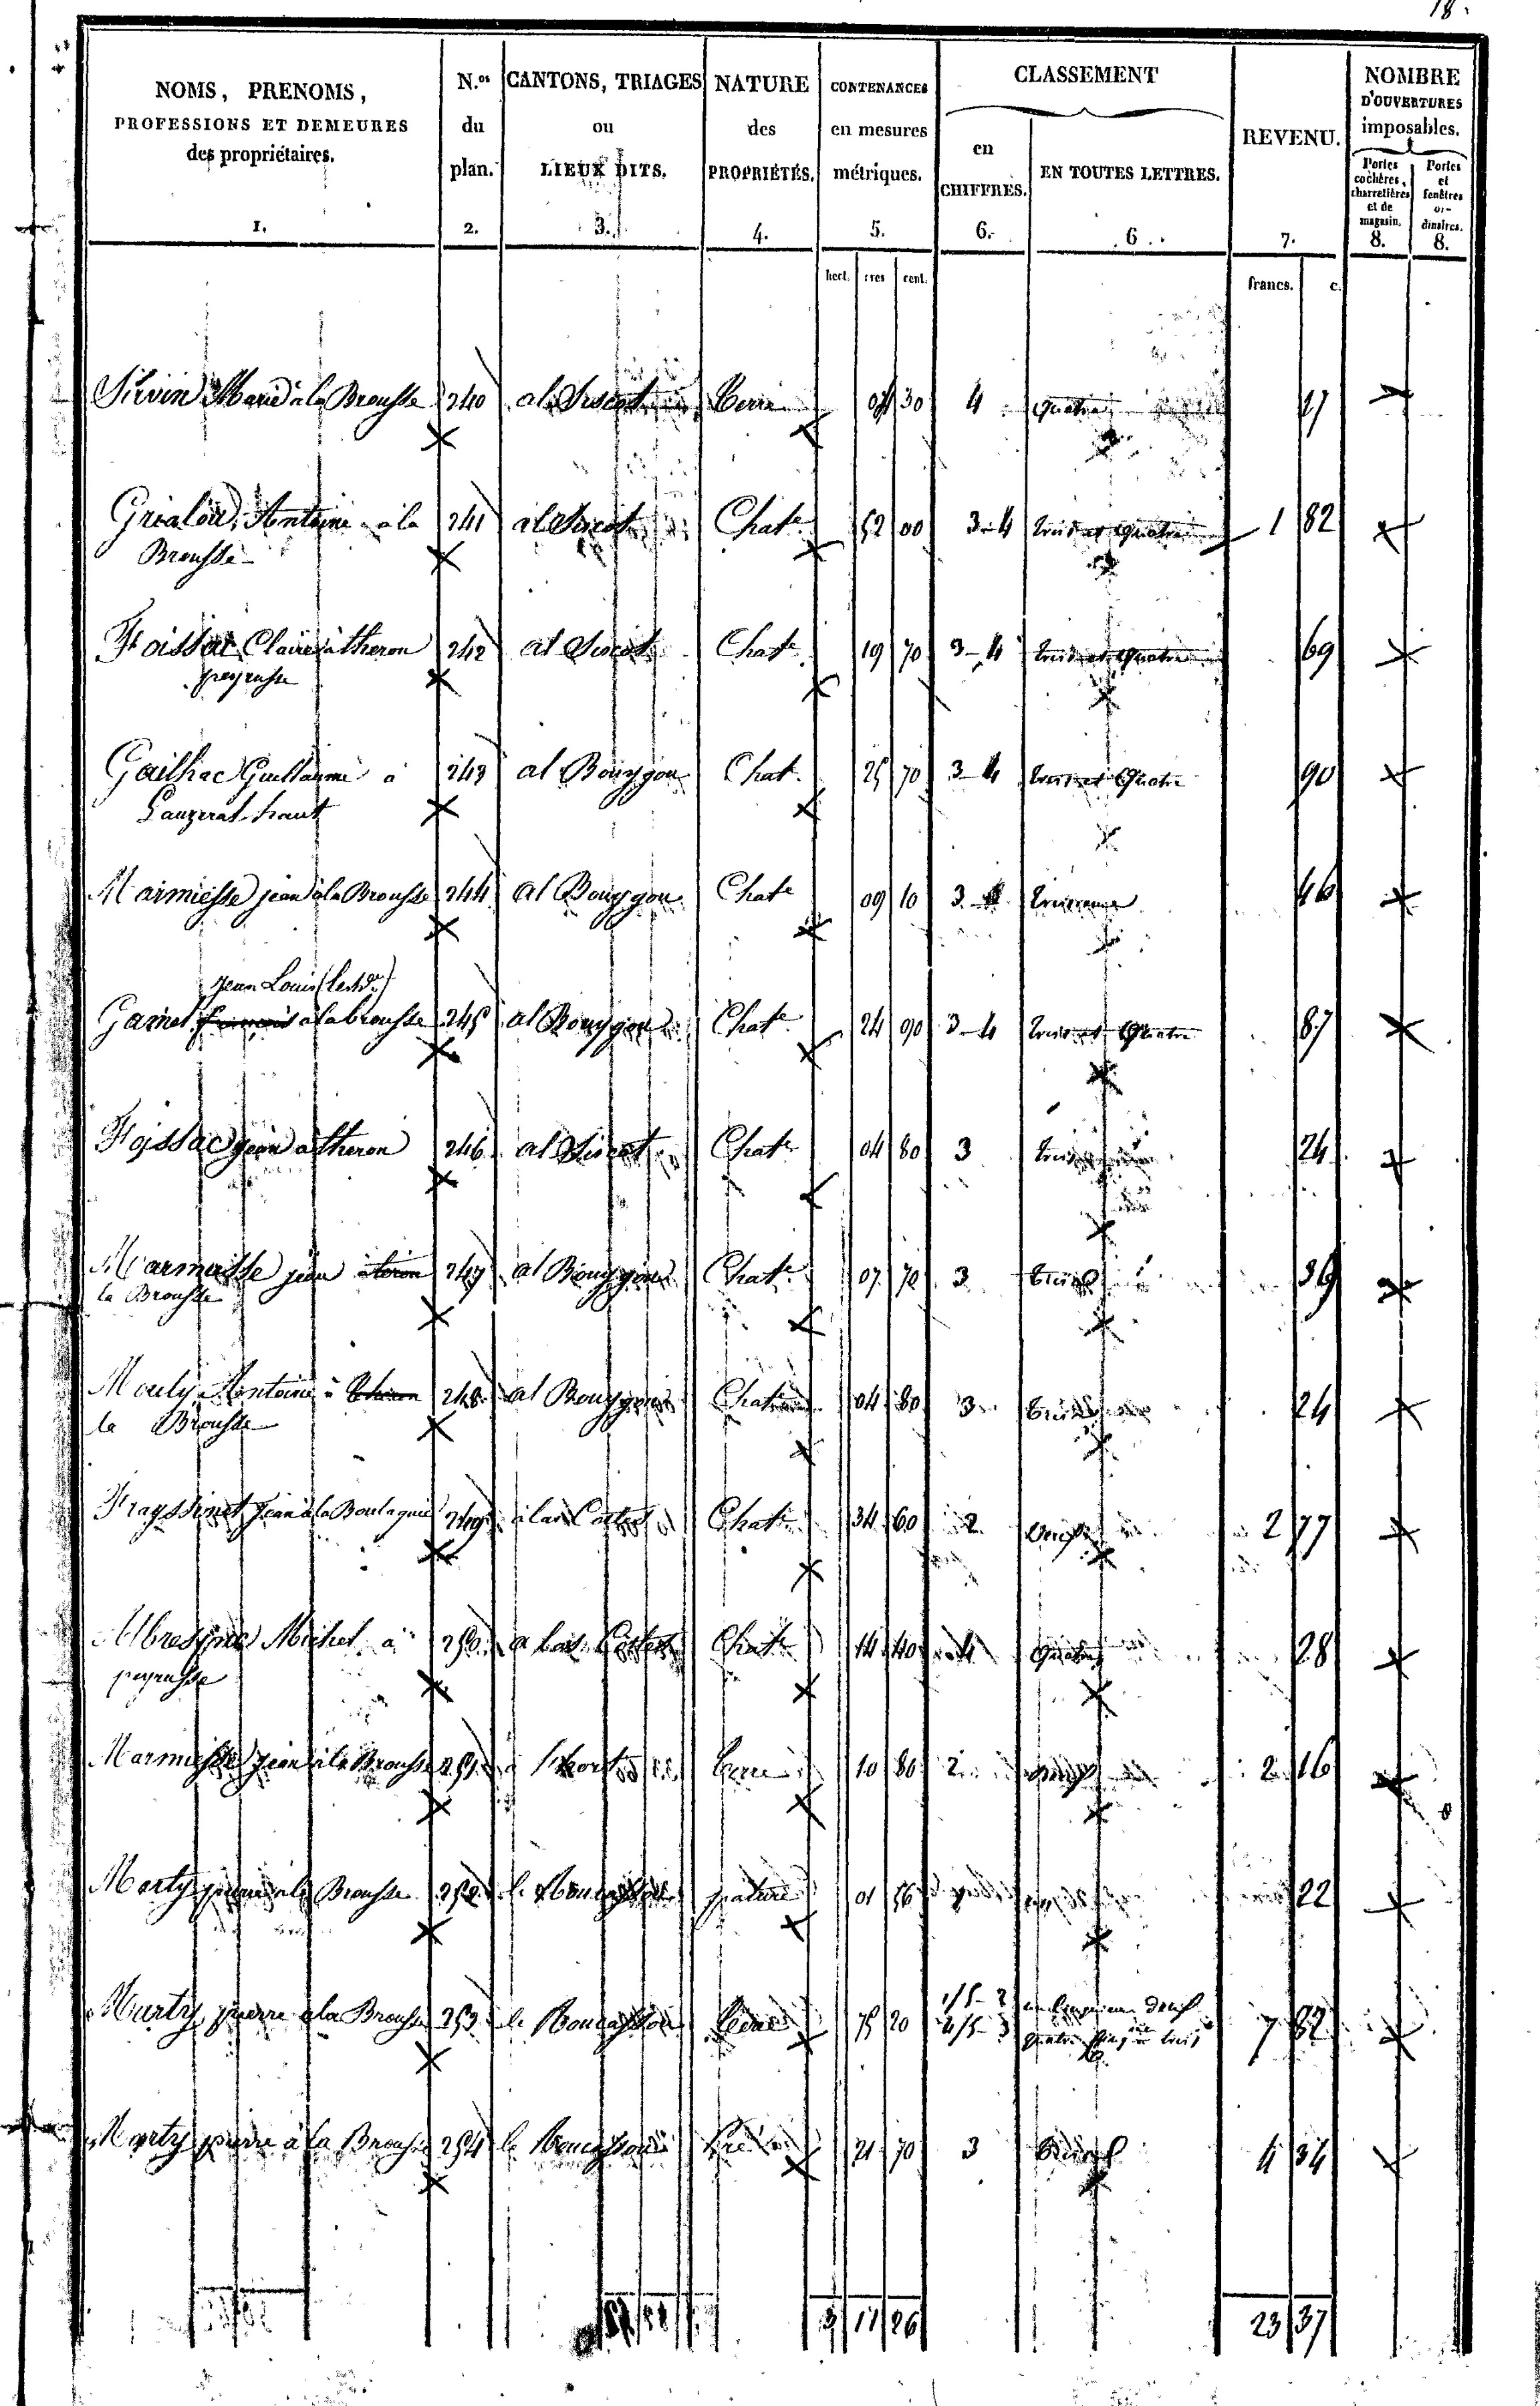 18.
NOMS, PRENOMS,
PROFESSIONS ET DEMEURES
des propriétaires.
1.
N.os
du
plan.
2.
CANTONS, TRIAGES
ou
LIEUX DITS.
3.
NATURE
des
PROPRIÉTÉS.
4.
CONTENANCES
en mesures
métriques.
5.
CLASSEMENT
en
CHIFFRES.
6.
EN TOUTES LETTRES.
6.
REVENU.
7.
NOMBRE
D'OUVERTURES
imposables.
Portes
cochères,
charretières
et de
magasin.
8.
Portes
et
fenêtres
or-
dinaires.
8.
hect. ares cent.
francs. c.
Sirvin Marie à la Brousse 240 al Siscot Terre 30 4 quatre
Grialou Antoine à la 241 al Siscot Chate 52 00 3-4 trois et quatre 1 82
Brousse
Foissac Claire à theron 242 al Siscot Chate 19 70 3-4 trois et quatre 69
peyrusse
Gailhac Guillaume à 243 al Bouygou Chat. 25 70 3-4 trois et Quatre 90
Lauzerat haut
Marmiesse jean à la Brousse 244 al Bouygou Chate 09 10 3 46
Jean Louis
Garnet à la brousse 245 al Bouygou Chate 24 90 3-4 trois et Quatre 87
Foissac jean à theron 246 al Siscot Chate 04 80 3 trois 24
Marmiesse jean à teron 247 al Bouygou Chate 07 70 3 trois 39
la Brousse
Mouly Antoine à theron 248 al Bouygou Chate 04 80 3 trois 24
la Brousse
Frayssinet Jean à la Boulaquie 249 à las Costes Chate 34 60 2 Deux 2 77
Michel à 250 a las Costes Chate 14 40 4 Quatre 28
peyrusse
Marmiesse Jean à la Brousse 251 à l'hort terre 10 80 2 deux 2 16
Marty pierre à la Brousse 252 le Roucassou pature 01 56 22
1/5-2 un cinquieme deux
Marty pierre à la Brousse 253 le Roucassou Terre 75 20 7 82
4/5-3 quatre cinq me trois
Marty pierre à la Brousse 254 le Roucassou Pré 21 70 3 trois 4 34
3 11 26 23 37